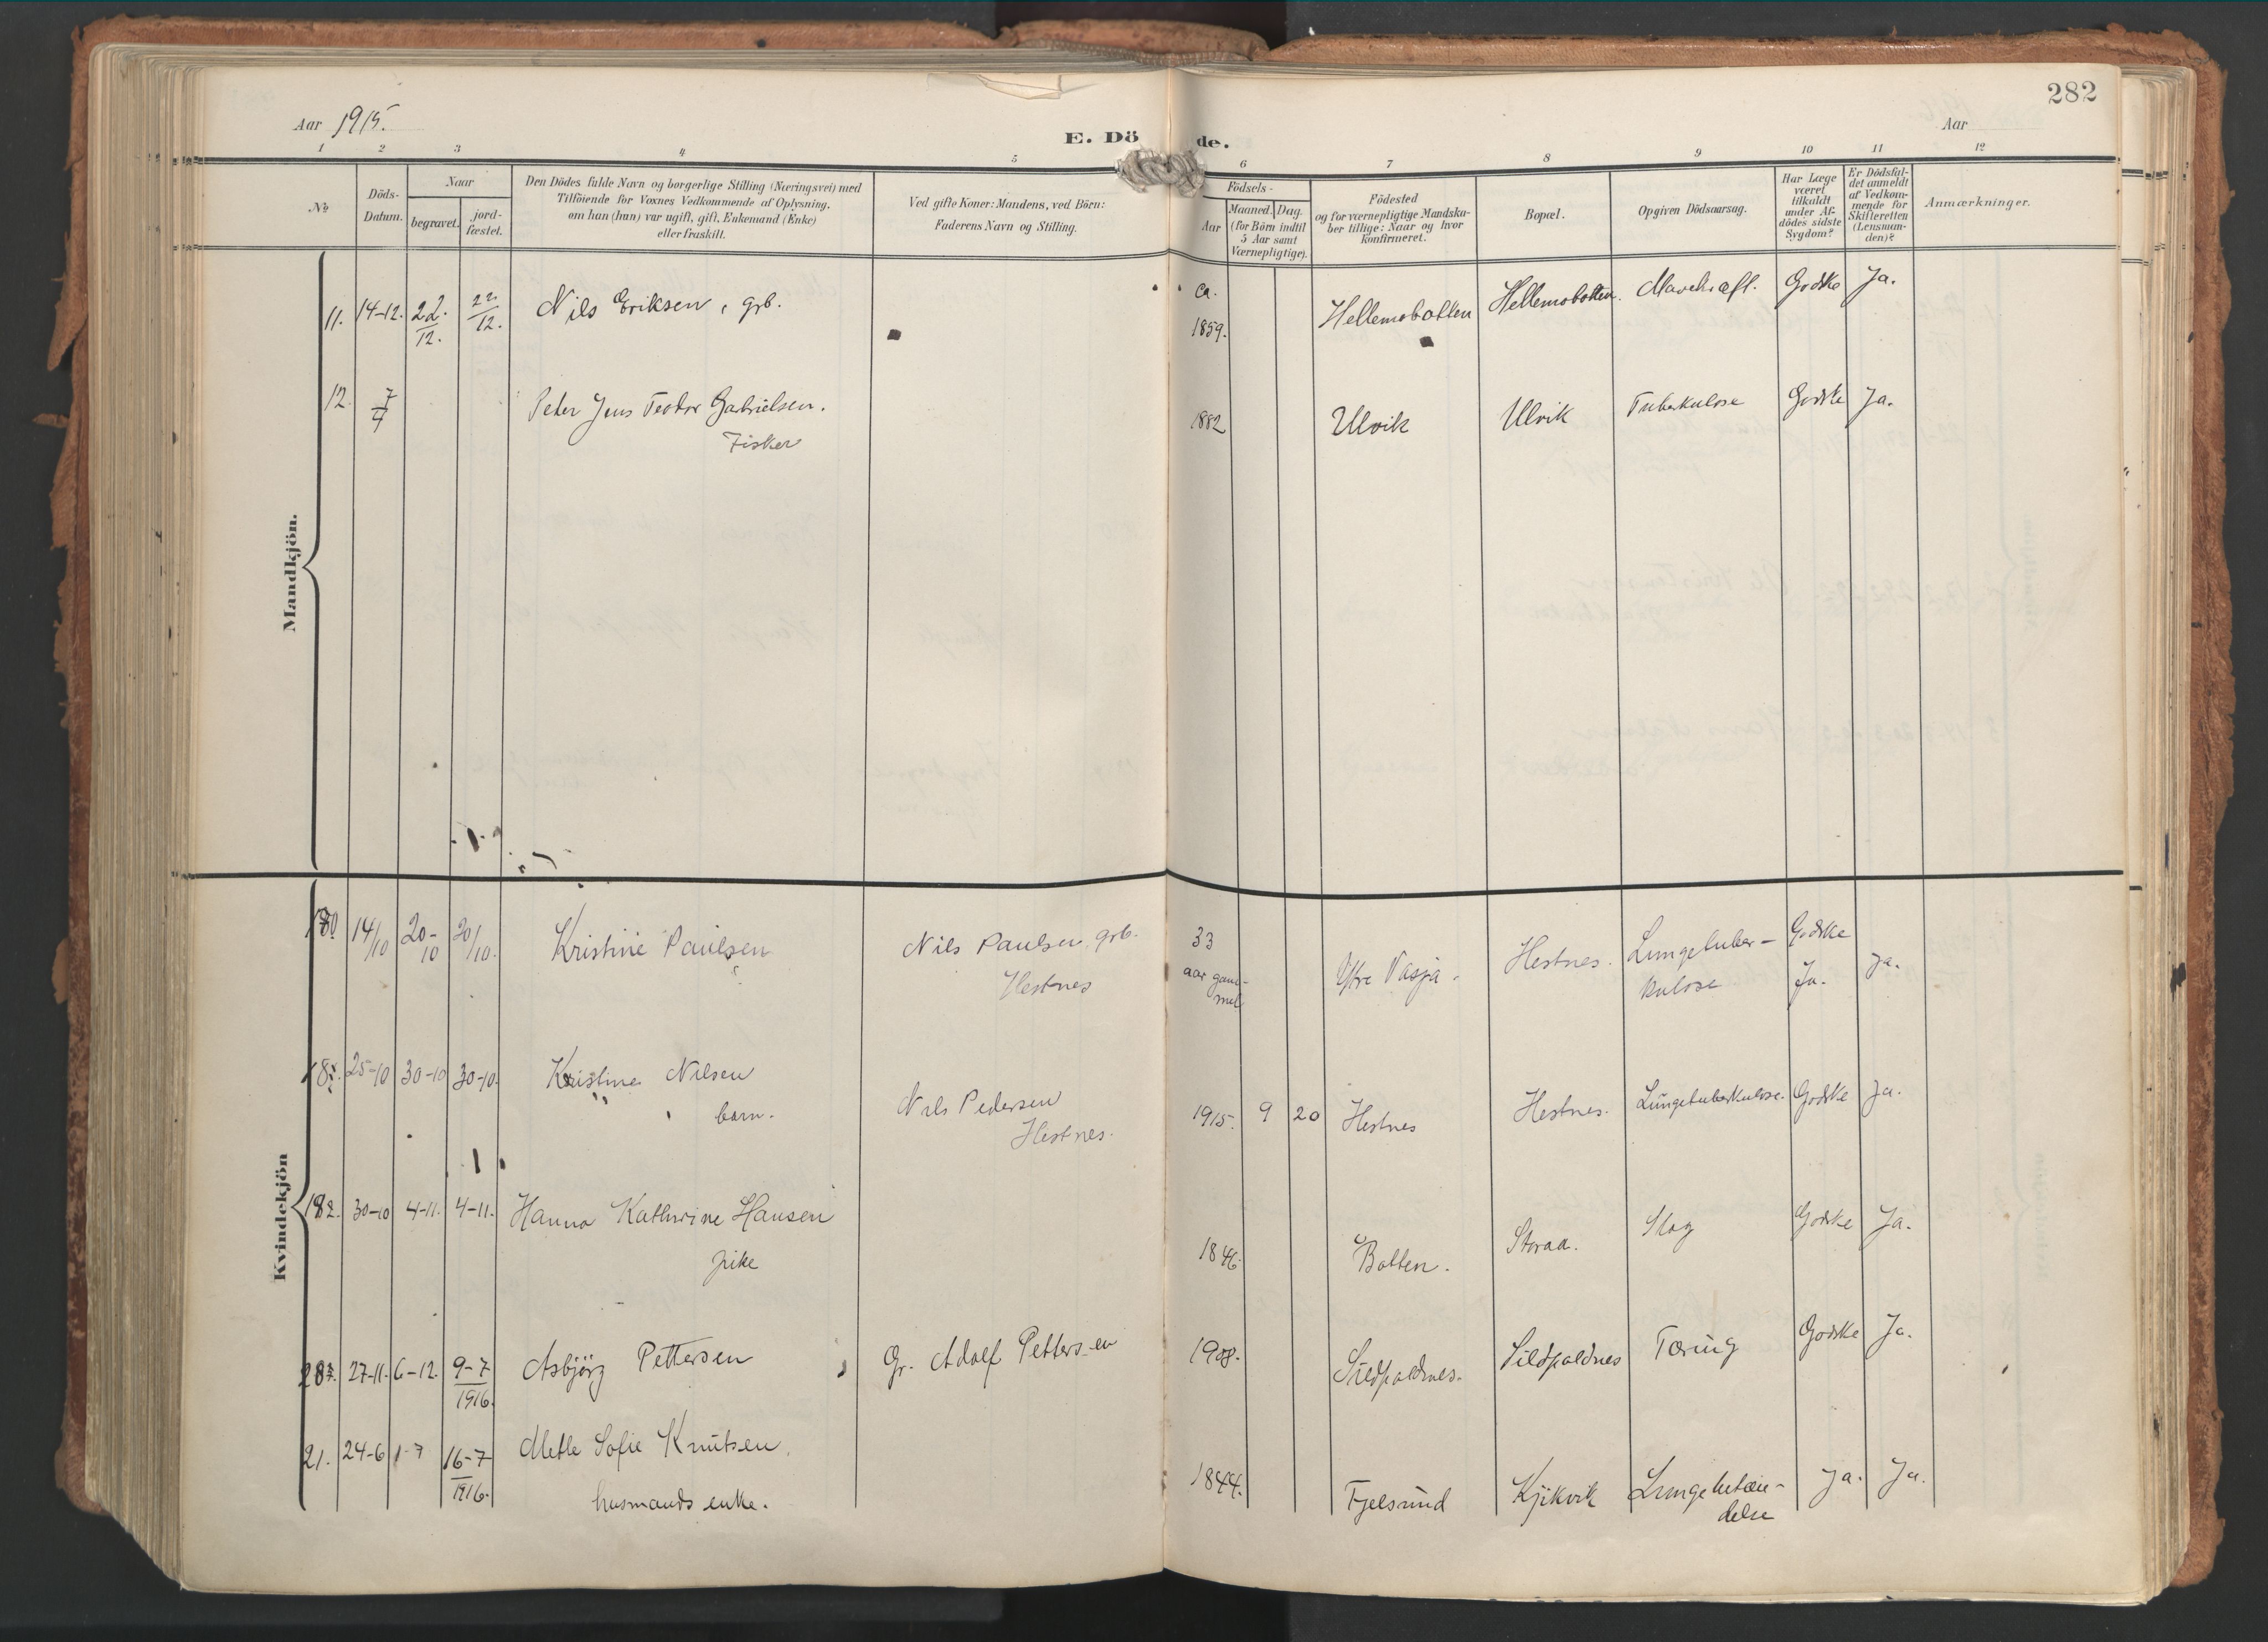 282
Aar 1915.
Aar
E. Dö de.
1 2 3 4 5 6 7 8 9 10 11 12
No
Döds-
Datum.
Naar
begravet.
jord-
fæstet.
Den Dödes fulde Navn og borgerlige Stilling (Næringsvei) med
Tilföiende for Voxnes Vedkommende af Oplysning,
om han (hun) var ugift, gift, Enkemand (Enke)
eller fraskilt.
Ved gifte Koner: Mandens, ved Börn:
Faderens Navn og Stilling.
Födsels-
Aar
Maaned. Dag.
(for Börn indtil
5 Aar samt
Værnepligtige).
Födested
og for værnepligtige Mandska-
ber tillige: Naar og hvor
konfirmeret.
Bopæl.
Opgiven Dödsaarsag.
Har Læge
været
tilkaldt
under Af-
dödes sidste
Sygdom?
Er Dödsfal-
det anmeldt
af Vedkom-
mende for
Skifteretten
(Lensman-
den)?
Anmærkninger.
Mandkjön.
11. 14-12. 22/12. 22/12. Nils Eriksen, grb. ca. 1859. Hellemobotten Hellemobotten. Godke Ja.
12. 7/7 Peter Jens Teodor Gabrielsen.
Fisker
1882 Ulvik Ulvik Tuberkulose Godske Ja.
Kvindekjön
14/10 20-10 20/10. Kristine Paulsen Nils Paulsen, grb.
Hestnes
33
aar gam-
mel
Ytre Vasja. Hestnes. Lungetuber-
kulose
Godske
Ja.
Ja.
25-10 30-10 30-10. Kristine Nilsen
barn.
Nils Pedersen
Hestnes.
1915. 9 20 Hestnes Hestnes. Lungetuberkulose. Godske Ja.
30-10 4-11. 4-11. Hanna Kathrine Hansen
pike
1846. Botten. Storaa. Slag Godske Ja.
27-11. 6-12. 9-7/1916. Asbjörg Pettersen Gr. Adolf Pettersen
1908. Sildpaldnes. Sildpaldnes Tæring Godske Ja.
21. 24-6 1-7 16-7/1916. Mette Sofie Knutsen,
husmands enke.
1844. Fjelsund Kjikvik Lungebetæn-
delse
Ja. Ja.